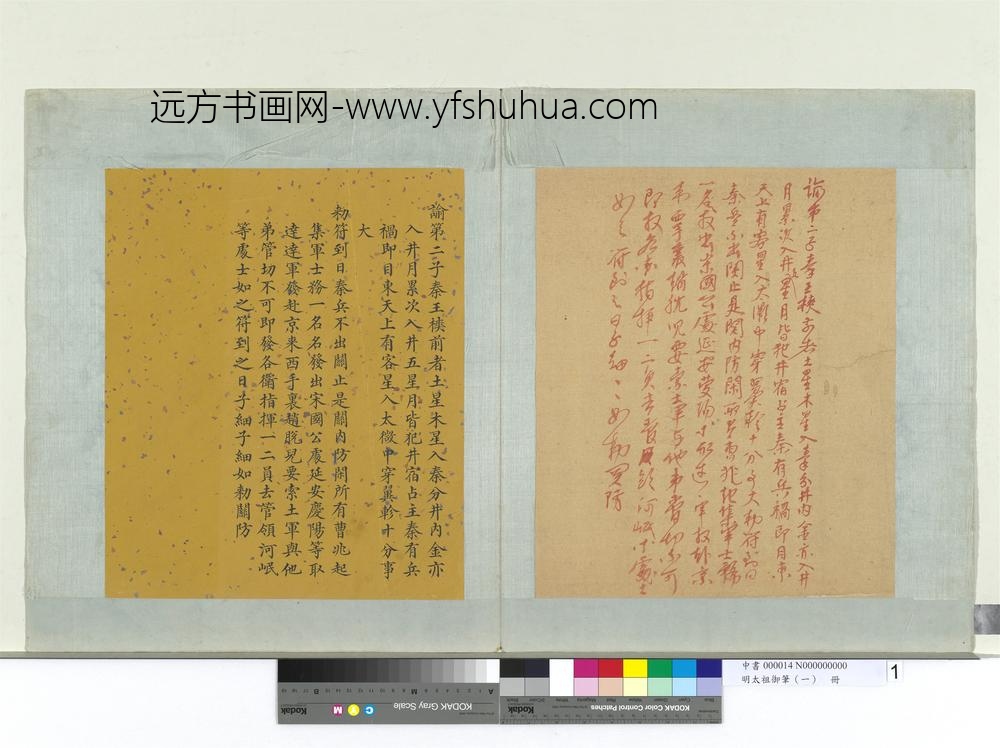 远方书画网-www.yfshuhua.com
諭第二子秦王
月累次入井五星月皆犯井宿占主秦有兵禍即目東
天上有客星入太微中穿翼軫十分事大勅符到日
秦兵不出関止是関内防閑所有曹兆起集軍士務
一名發出宋國公處延安慶陽等取達達軍發赴京
来西手裏趙脱児要索土軍與他弟管切不可
即發各衛指揮一二員去管領河岷等處土
如之符到之日子細子細如勅関防
諭第二子秦王樉前者土星木星入秦分井内金亦
入井月累次入井五星月皆犯井宿占主秦有兵
禍即目東天上有客星入太微中穿翼軫十分事
大
勅符到日秦兵不出關止是關内防閑所有曹兆起
集軍士務一名名發出宋國公處延安慶陽等取
達達軍發赴京来西手裏趙脱兒要索土軍與他
弟管切不可即發各衛指揮一二員去管領河岷
等處土如之符到之日子細子細如勅關防
中書 000014 N000000000
明太祖御筆（一） 冊
1
KODAK Gray Scale
KODAK Color Control Patches
Kodak